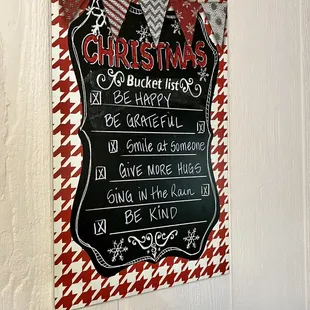 CHRISTMAS
Bucket list
BE HAPPY
BE GRATEFUL
Smile at Someone
GIVE MORE HUGS
SING IN the RAIN
BE KIND